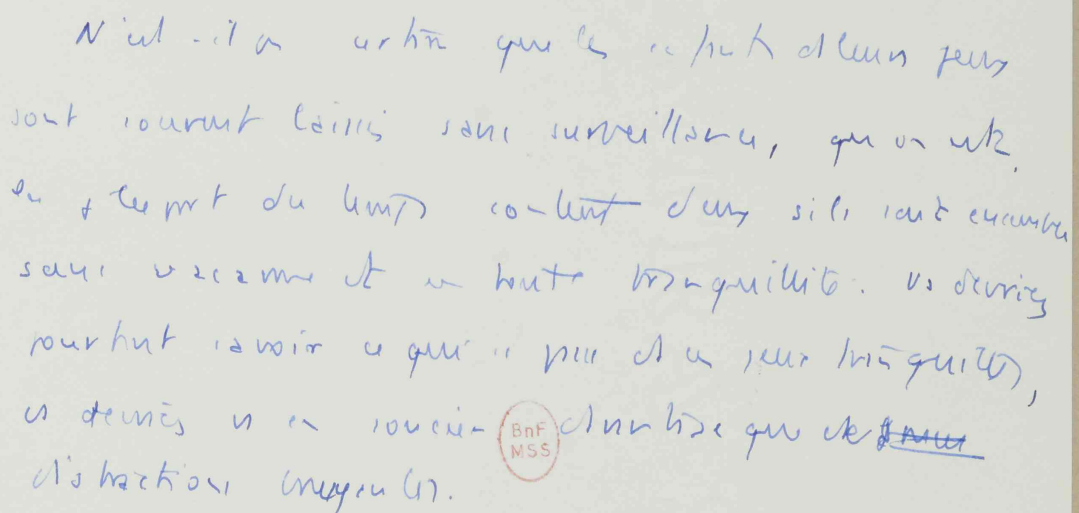 N'est-il pas certain que les enfants dans leurs jeux
sont souvent laissés sans surveillance, que vs êtes
la plupart du temps contents d'eux s'ils sont ensemble
sans vacarme et en toute tranquillité. Vs devriez
pourtant savoir ce qui se passe ds ces jeux tranquilles,
vs devriez vs en soucier davantage que de
distractions bruyantes.
BnF
MSS